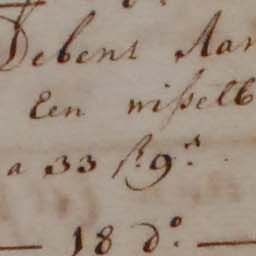 Debent Aan
Een wisselb
a 33 ß 9.s
18 d.o